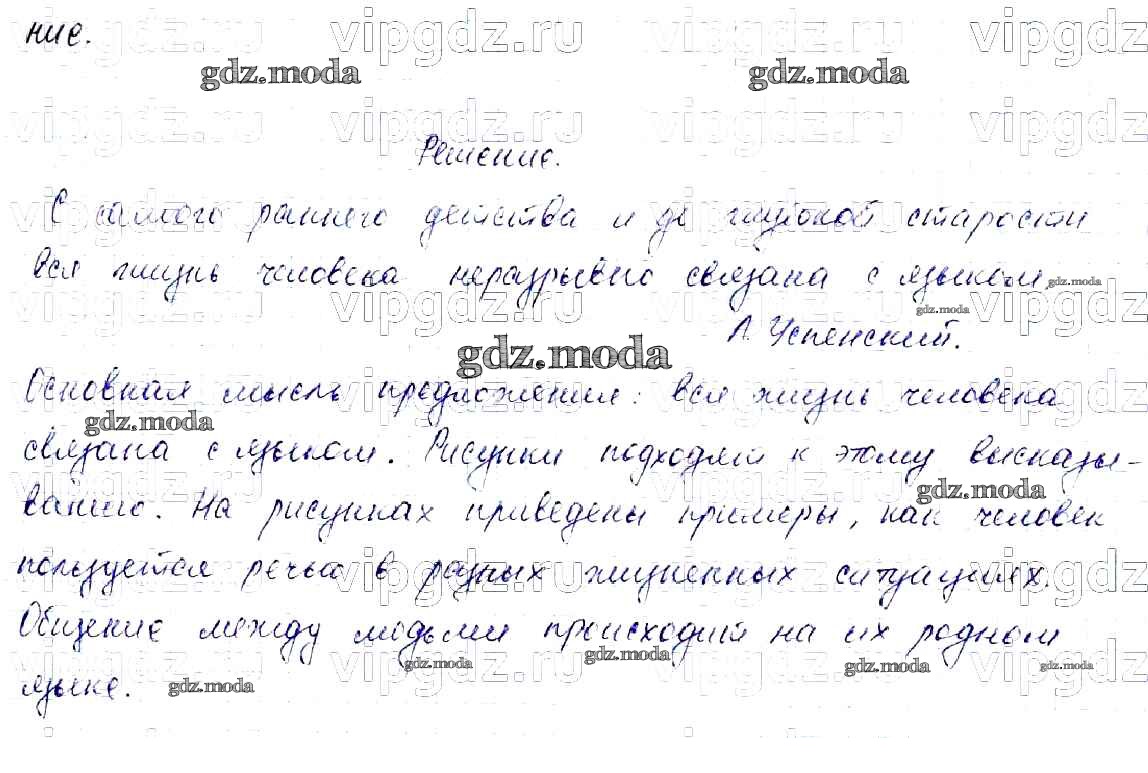 ние.
Решение.
С самого раннего детства и до глубокой старости
вся жизнь человека неразрывно связана с языком.
Л. Успенский.
Основная мысль предложения: вся жизнь человека
связана с языком. Рисунки подходят к этому высказы-
ванию. На рисунках приведены примеры, как человек
пользуется речью в разных жизненных ситуациях.
Общение между людьми происходит на их родном
языке.
vipgdz.ru
gdz.moda